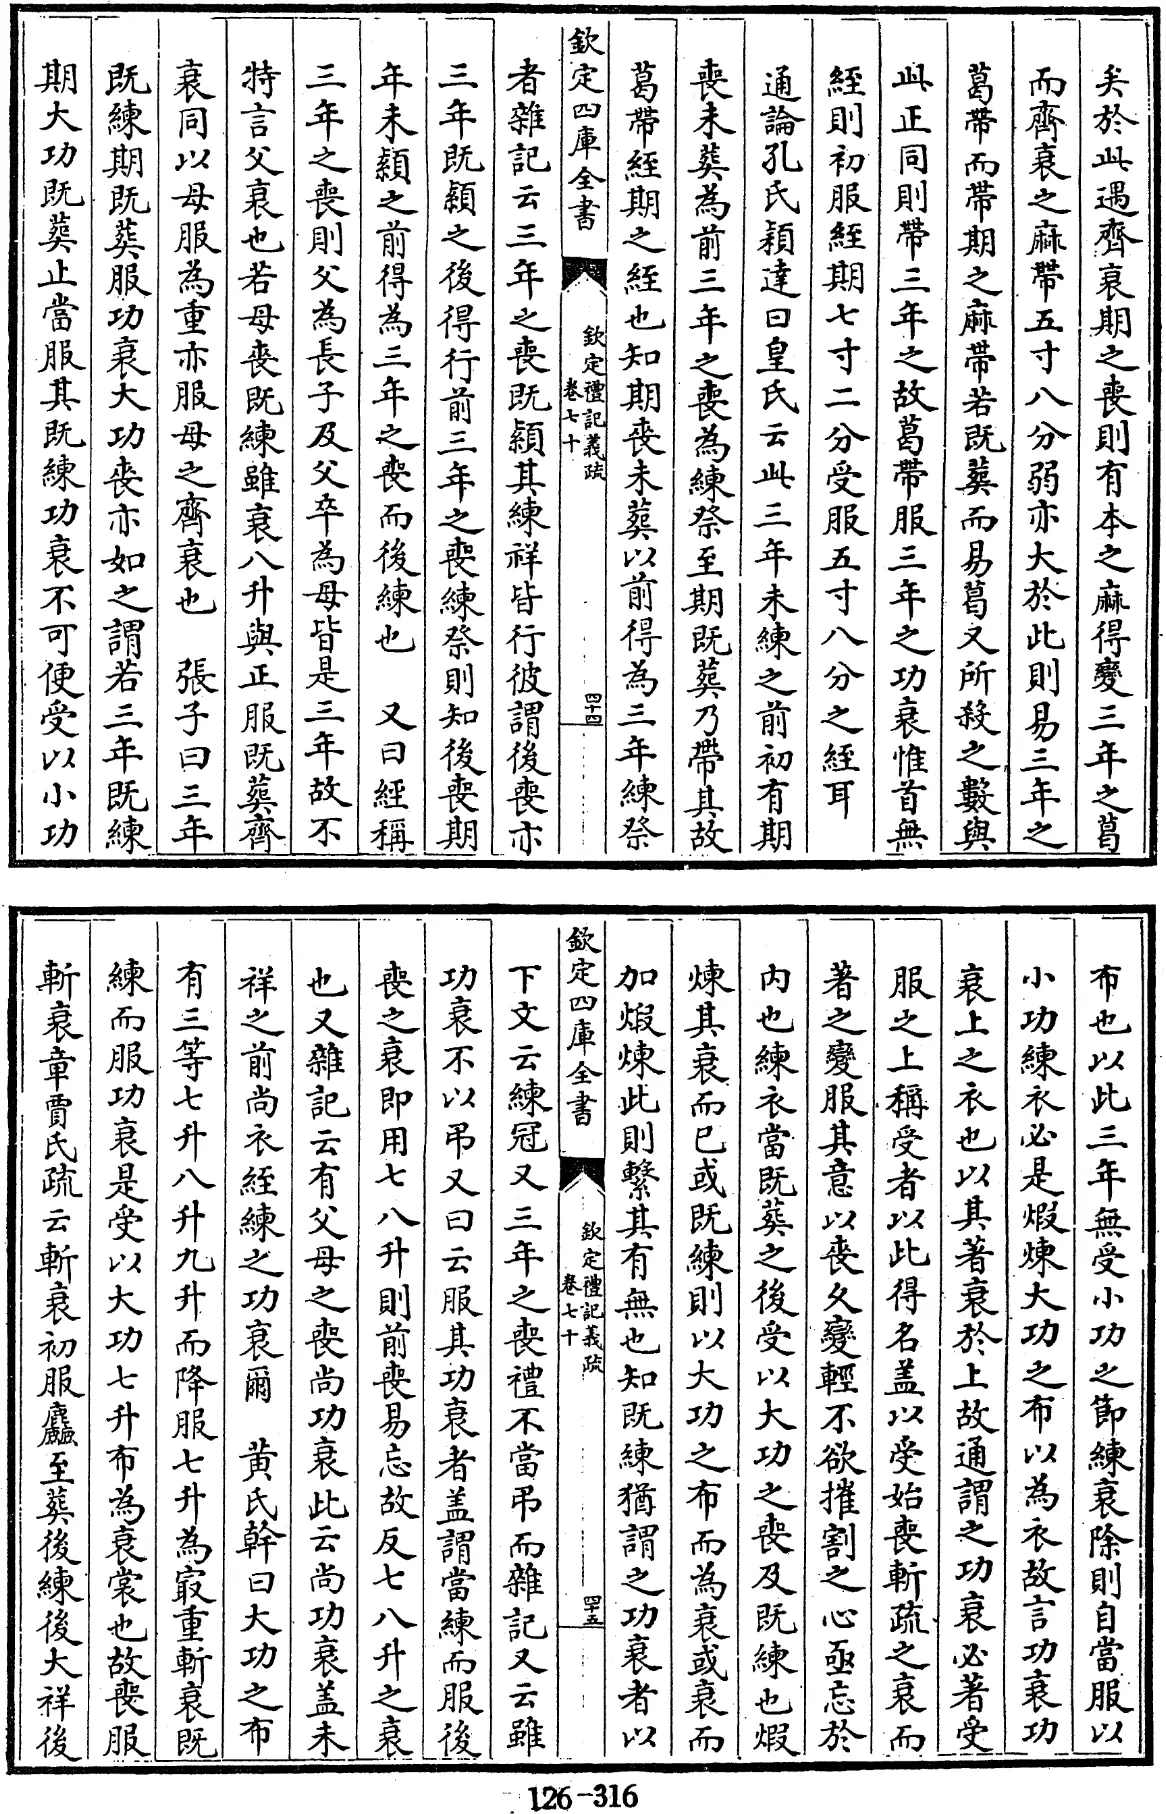 矣於此遇齊衰期之喪則有本之麻得變三年之葛
而齊衰之麻帶五寸八分弱亦大於此則易三年之
葛帶而帶期之麻帶若既葬而易葛又所殺之數與
此正同則帶三年之故葛帶服三年之功衰惟首無
絰則初服絰期七寸二分受服五寸八分之絰耳
通論孔氏穎達曰皇氏云此三年未練之前初有期
喪未葬為前三年之喪為練祭至期既葬乃帶其故
葛帶絰期之絰也知期喪未葬以前得為三年練祭
欽定四庫全書
欽定禮記義疏
卷七十
四十四
者雜記云三年之喪既顈其練祥皆行彼謂後喪亦
三年既顈之後得行前三年之喪練祭則知後喪期
年未顈之前得為三年之喪而後練也 又曰經稱
三年之喪則父為長子及父卒為母皆是三年故不
特言父衰也若母喪既練雖衰八升與正服既葬齊
衰同以母服為重亦服母之齊衰也 張子曰三年
既練期既葬服功衰大功喪亦如之謂若三年既練
期大功既葬止當服其既練功衰不可便受以小功
布也以此三年無受小功之節練衰除則自當服以
小功練衣必是煆煉大功之布以為衣故言功衰功
衰上之衣也以其著衰於上故通謂之功衰必著受
服之上稱受者以此得名盖以受始喪斬疏之衰而
著之變服其意以喪久變輕不欲摧割之心亟忘於
内也練衣當既葬之後受以大功之喪及既練也煆
煉其衰而已或既練則以大功之布而為衰或衰而
加煆煉此則繫其有無也知既練猶謂之功衰者以
欽定四庫全書
欽定禮記義疏
卷七十
四十五
下文云練冠又三年之喪禮不當弔而雜記又云雖
功衰不以弔又曰云服其功衰者盖謂當練而服後
喪之衰即用七八升則前喪易忘故反七八升之衰
也又雜記云有父母之喪尚功衰此云尚功衰盖未
祥之前尚衣絰練之功衰爾 黄氏幹曰大功之布
有三等七升八升九升而降服七升為㝡重斬衰既
練而服功衰是受以大功七升布為衰裳也故喪服
斬衰章賈氏疏云斬衰初服麤至葬後練後大祥後
126-316